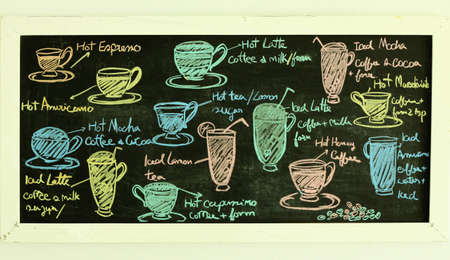 Hot Espresso
Hot Latte
coffee & milk/form
Iced Mocha
Coffee & Cocoa
+ form
Hot
coffee+
Hot Americano
Hot tea/Lemon
sugar
Iced Latte
Coffee+Milk
form
Hot Mocha
Coffee & Cocoa
Iced Lemon
tea
Hot Honey
Coffee
Iced
coffee+
water+
Iced
Iced Latte
coffee & milk
sugar/
Hot Capussino
coffee + form